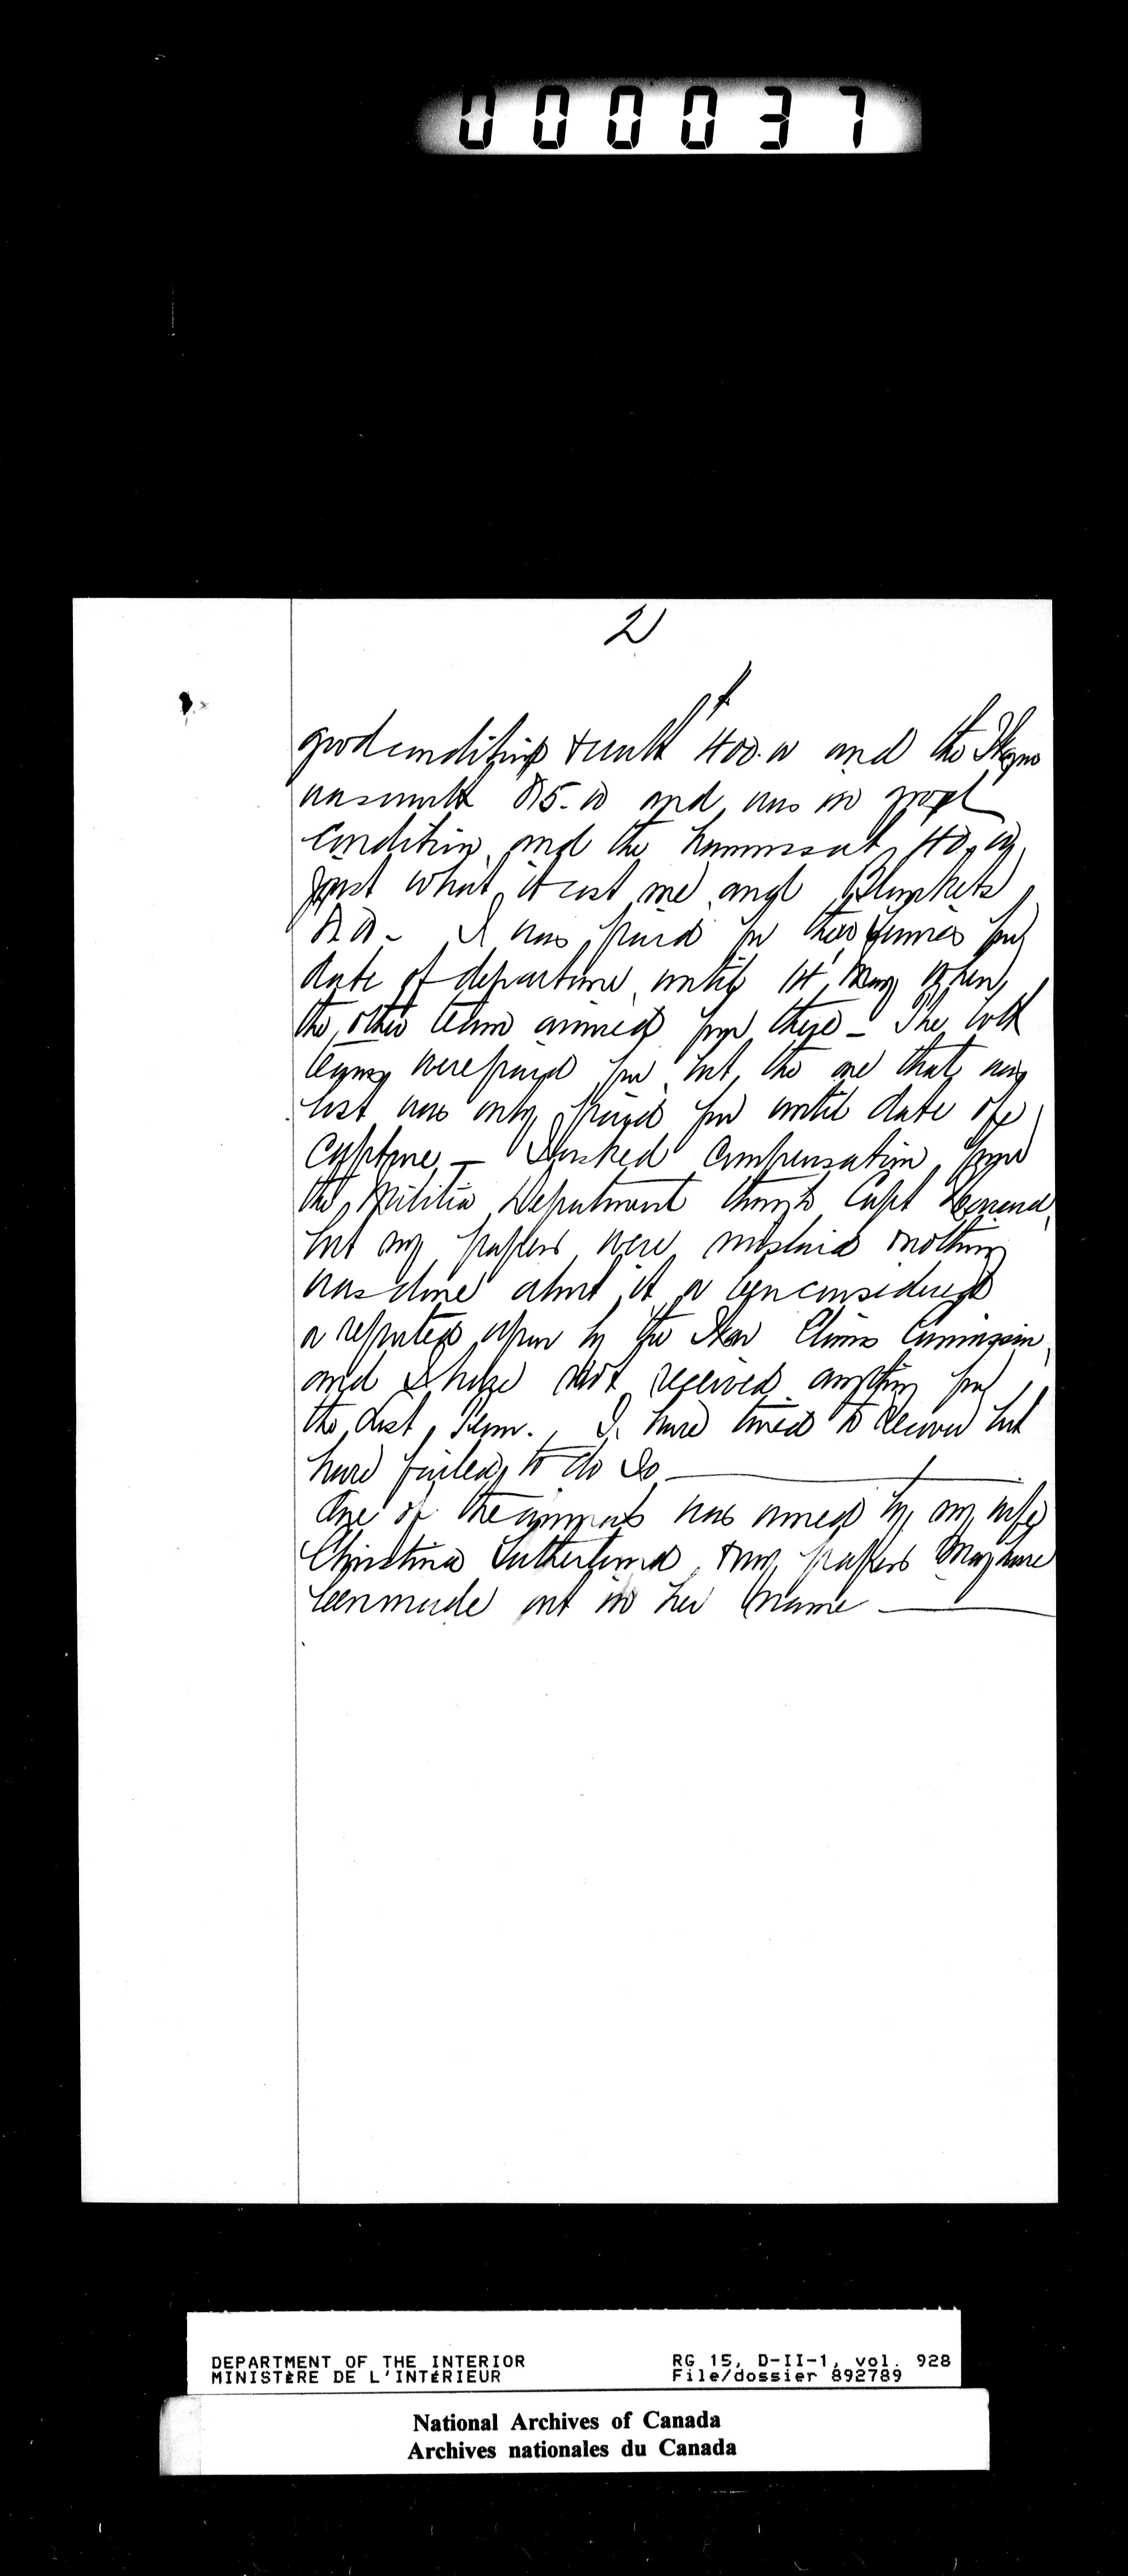 000037
2
good condition & worth $400.00 and the Wagon
was worth 85.00 and was in good
condition and the harness at 40.00
just what it cost me and Blankets
I was paid for their services from
date of departure until 14 May when
the other team arrived from there – The both
teams were paid for but the one that was
lost was only paid for until date of
Capture – I asked Compensation from
the Militia Department through Capt
but my papers were mislaid & nothing
was done about it or been considered
or reported upon by the War Claims Commission
and I have not received anything for
the Lost Team. I have tried to recover but
have failed to do so
One of the animals was owned by my wife
Christina Sutherland & my papers May have
been made out in her name
DEPARTMENT OF THE INTERIOR
MINISTÈRE DE L'INTÉRIEUR
RG 15, D-II-1, vol. 928
File/dossier 892789
National Archives of Canada
Archives nationales du Canada